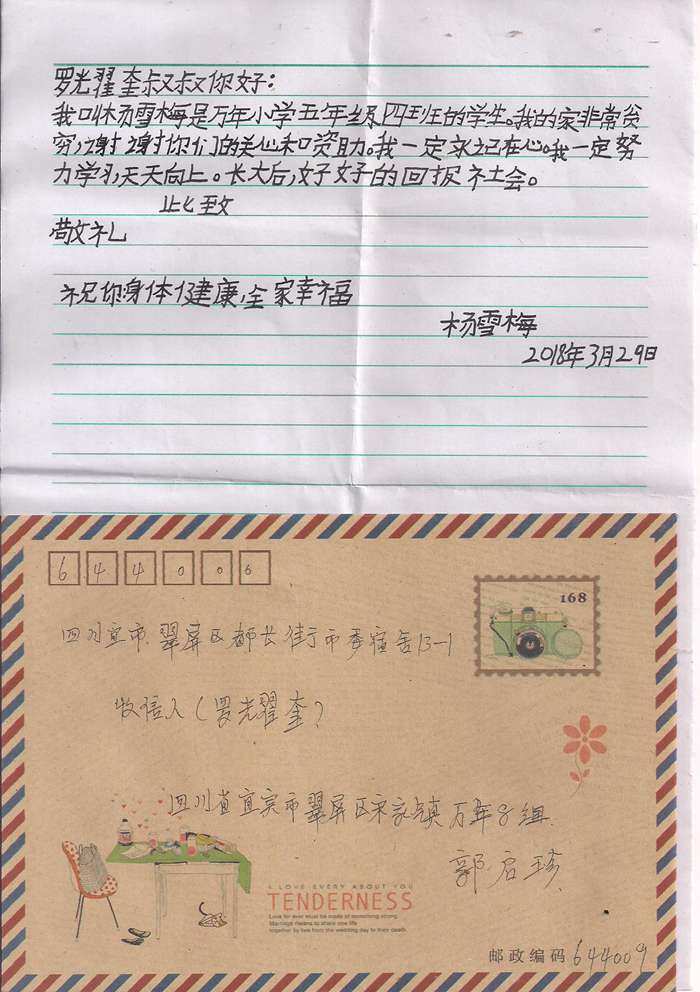 罗光翟奎叔叔你好：
我叫杨雪梅是万年小学五年级四班的学生。我的家非常贫
穷，谢谢你们的关心和资助。我一定永记在心。我一定努
力学习，天天向上。长大后，好好的回报社会。
此致
敬礼
祝你身体健康，全家幸福
杨雪梅
2018年3月29日
644006
168
四川宜市翠屏区都长街市委宿舍13-1
收信人（罗光翟奎）
四川省宜宾市翠屏区宋家镇万年8组
郭启
I LOVE EVERY ABOUT YOU
TENDERNESS
Love for ever must be made of something strong
Marriage means to share one life
together by two from the wedding day to their death.
邮政编码 644009